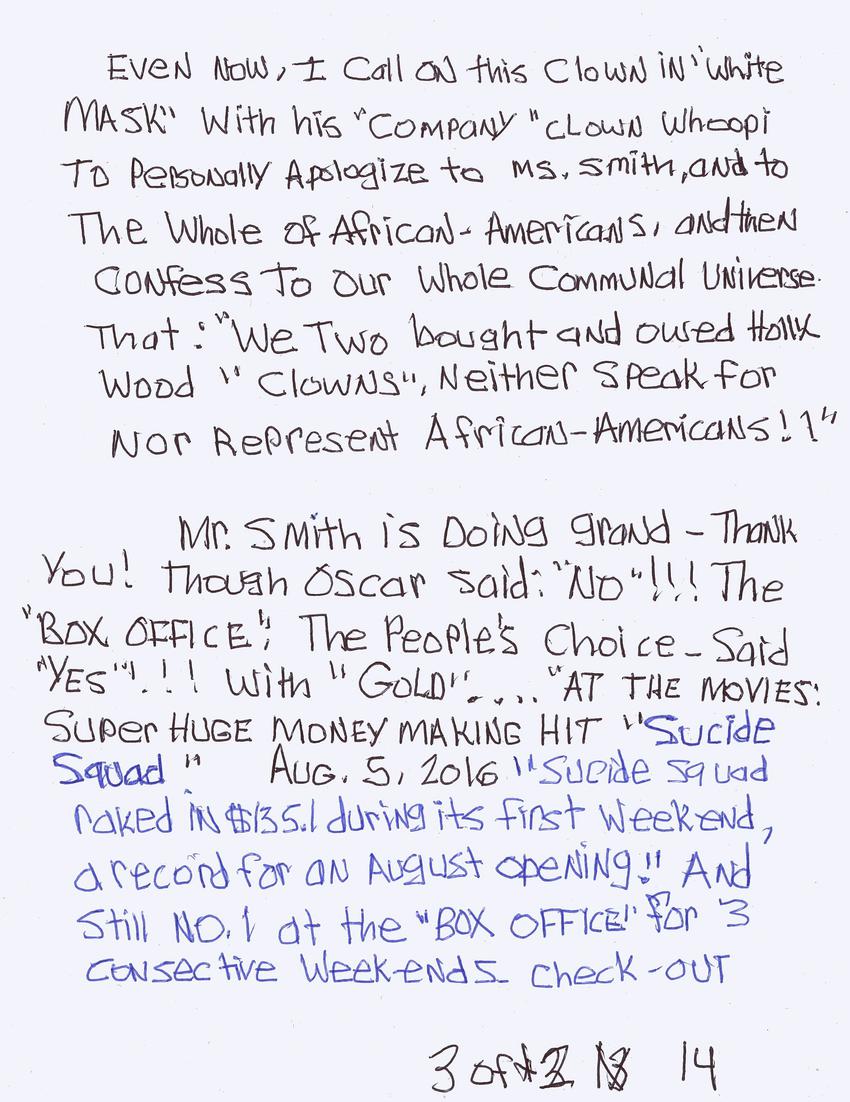 EVEN NOW, I Call ON this Clown iN "White
MASK" With his "COMPANY" CLOWN Whoopi
To Personally Apologize to Ms. Smith, and to
The Whole of African-Americans, and then
Confess To Our Whole Communal Universe.
That: "We Two bought and owed Holly
Wood "Clowns", Neither Speak for
Nor Represent African-Americans!!"
Mr. Smith is Doing grand - Thank
You! Though Oscar said: "No"!!! The
"BOX OFFICE", The People's Choice - Said
"YES"!!! With "GOLD".... "AT THE MOVIES:
Super HUGE MONEY MAKING HIT "Sucide
Squad" AUG. 5, 2016 "Sucide squad
raked iN $135.1 during its first Weekend,
a record for an August opening!" And
Still NO.1 at the "BOX OFFICE!" for 3
consective Week-ends. check-OUT
3 of 14